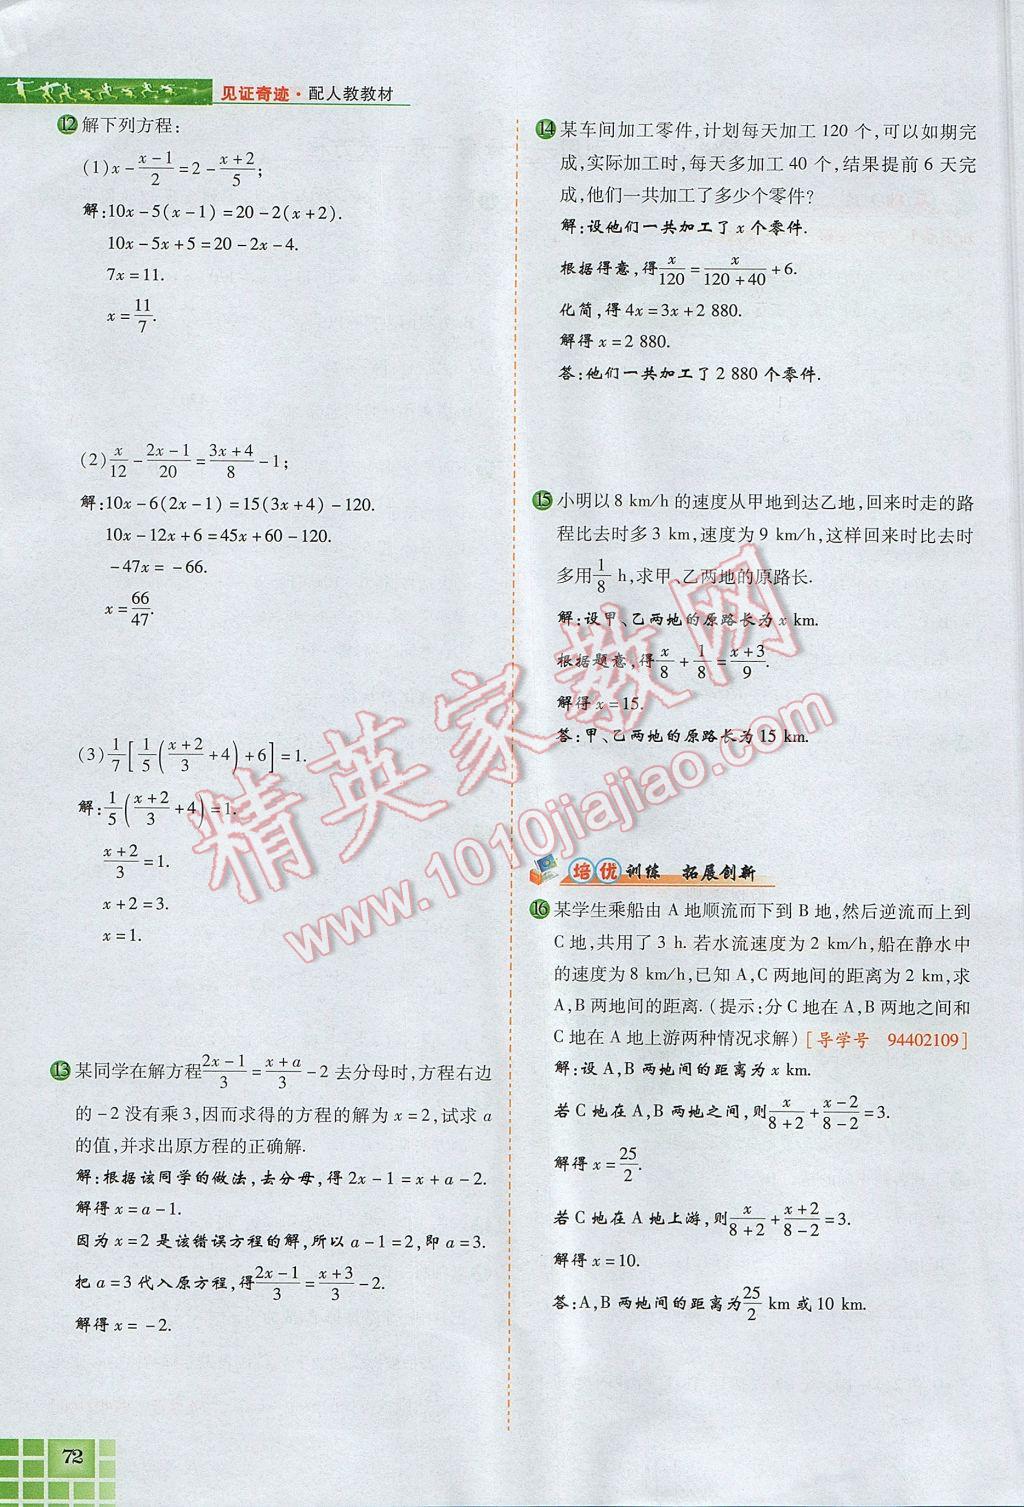 见证奇迹·配人教教材
12 解下列方程：
(1) x－(x－1)/2＝2－(x＋2)/5；
解：10x－5(x－1)＝20－2(x＋2).
10x－5x＋5＝20－2x－4.
7x＝11.
x＝11/7.
(2) x/12－(2x－1)/20＝(3x＋4)/8－1；
解：10x－6(2x－1)＝15(3x＋4)－120.
10x－12x＋6＝45x＋60－120.
－47x＝－66.
x＝66/47.
(3) 1/7[1/5((x＋2)/3＋4)＋6]＝1.
解：1/5((x＋2)/3＋4)＝1.
(x＋2)/3＝1.
x＋2＝3.
x＝1.
13 某同学在解方程(2x－1)/3＝(x＋a)/3－2去分母时，方程右边
的－2没有乘3，因而求得的方程的解为x＝2，试求a
的值，并求出原方程的正确解.
解：根据该同学的做法，去分母，得2x－1＝x＋a－2.
解得x＝a－1.
因为x＝2是该错误方程的解，所以a－1＝2，即a＝3.
把a＝3代入原方程，得(2x－1)/3＝(x＋3)/3－2.
解得x＝－2.
72
14 某车间加工零件，计划每天加工120个，可以如期完
成，实际加工时，每天多加工40个，结果提前6天完
成，他们一共加工了多少个零件？
解：设他们一共加工了x个零件.
根据得意，得x/120＝x/(120＋40)＋6.
化简，得4x＝3x＋2 880.
解得x＝2 880.
答：他们一共加工了2 880个零件.
15 小明以8 km/h的速度从甲地到达乙地，回来时走的路
程比去时多3 km，速度为9 km/h，这样回来时比去时
多用1/8 h，求甲、乙两地的原路长.
解：设甲、乙两地的原路长为x km.
根据题意，得x/8＋1/8＝(x＋3)/9.
解得x＝15.
答：甲、乙两地的原路长为15 km.
培优训练 拓展创新
16 某学生乘船由A地顺流而下到B地，然后逆流而上到
C地，共用了3 h.若水流速度为2 km/h，船在静水中
的速度为8 km/h，已知A，C两地间的距离为2 km，求
A，B两地间的距离.（提示：分C地在A，B两地之间和
C地在A地上游两种情况求解）[导学号 94402109]
解：设A、B两地间的距离为x km.
若C地在A、B两地之间，则x/(8＋2)＋(x－2)/(8－2)＝3.
解得x＝25/2.
若C地在A地上游，则x/(8＋2)＋(x＋2)/(8－2)＝3.
解得x＝10.
答：A，B两地间的距离为25/2 km或10 km.
精英家教网
www.1010jiajiao.com